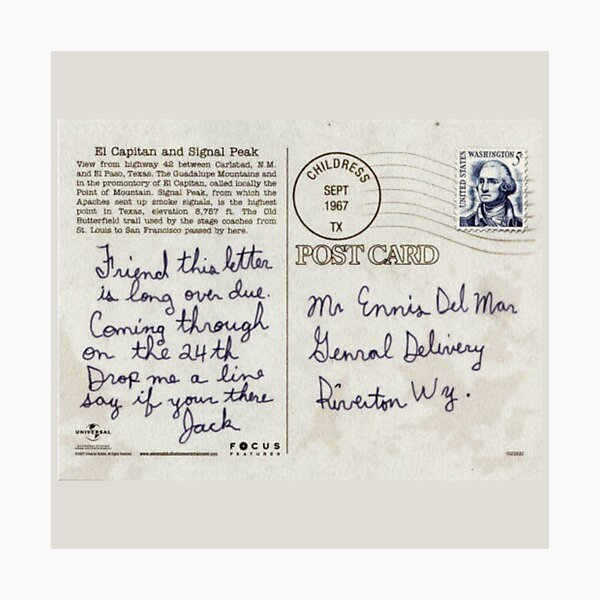 El Capitan and Signal Peak
View from highway 42 between Carlsbad, N.M.
and El Paso, Texas. The Guadalupe Mountains and
in the promontory of El Capitan, called locally the
Point of Mountain. Signal Peak, from which the
Apaches sent up smoke signals, is the highest
point in Texas, elevation 8,757 ft. The Old
Butterfield trail used by the stage coaches from
St. Louis to San Francisco passed by here.
Friend this letter
is long over due.
Coming through
on the 24th
Drop me a line
say if your there
Jack
UNIVERSAL
FOCUS
FEATURES
CHILDRESS
SEPT
1967
TX
UNITED STATES
WASHINGTON 5c
POST CARD
Mr Ennis Del Mar
Genral Delivery
Riverton Wy.